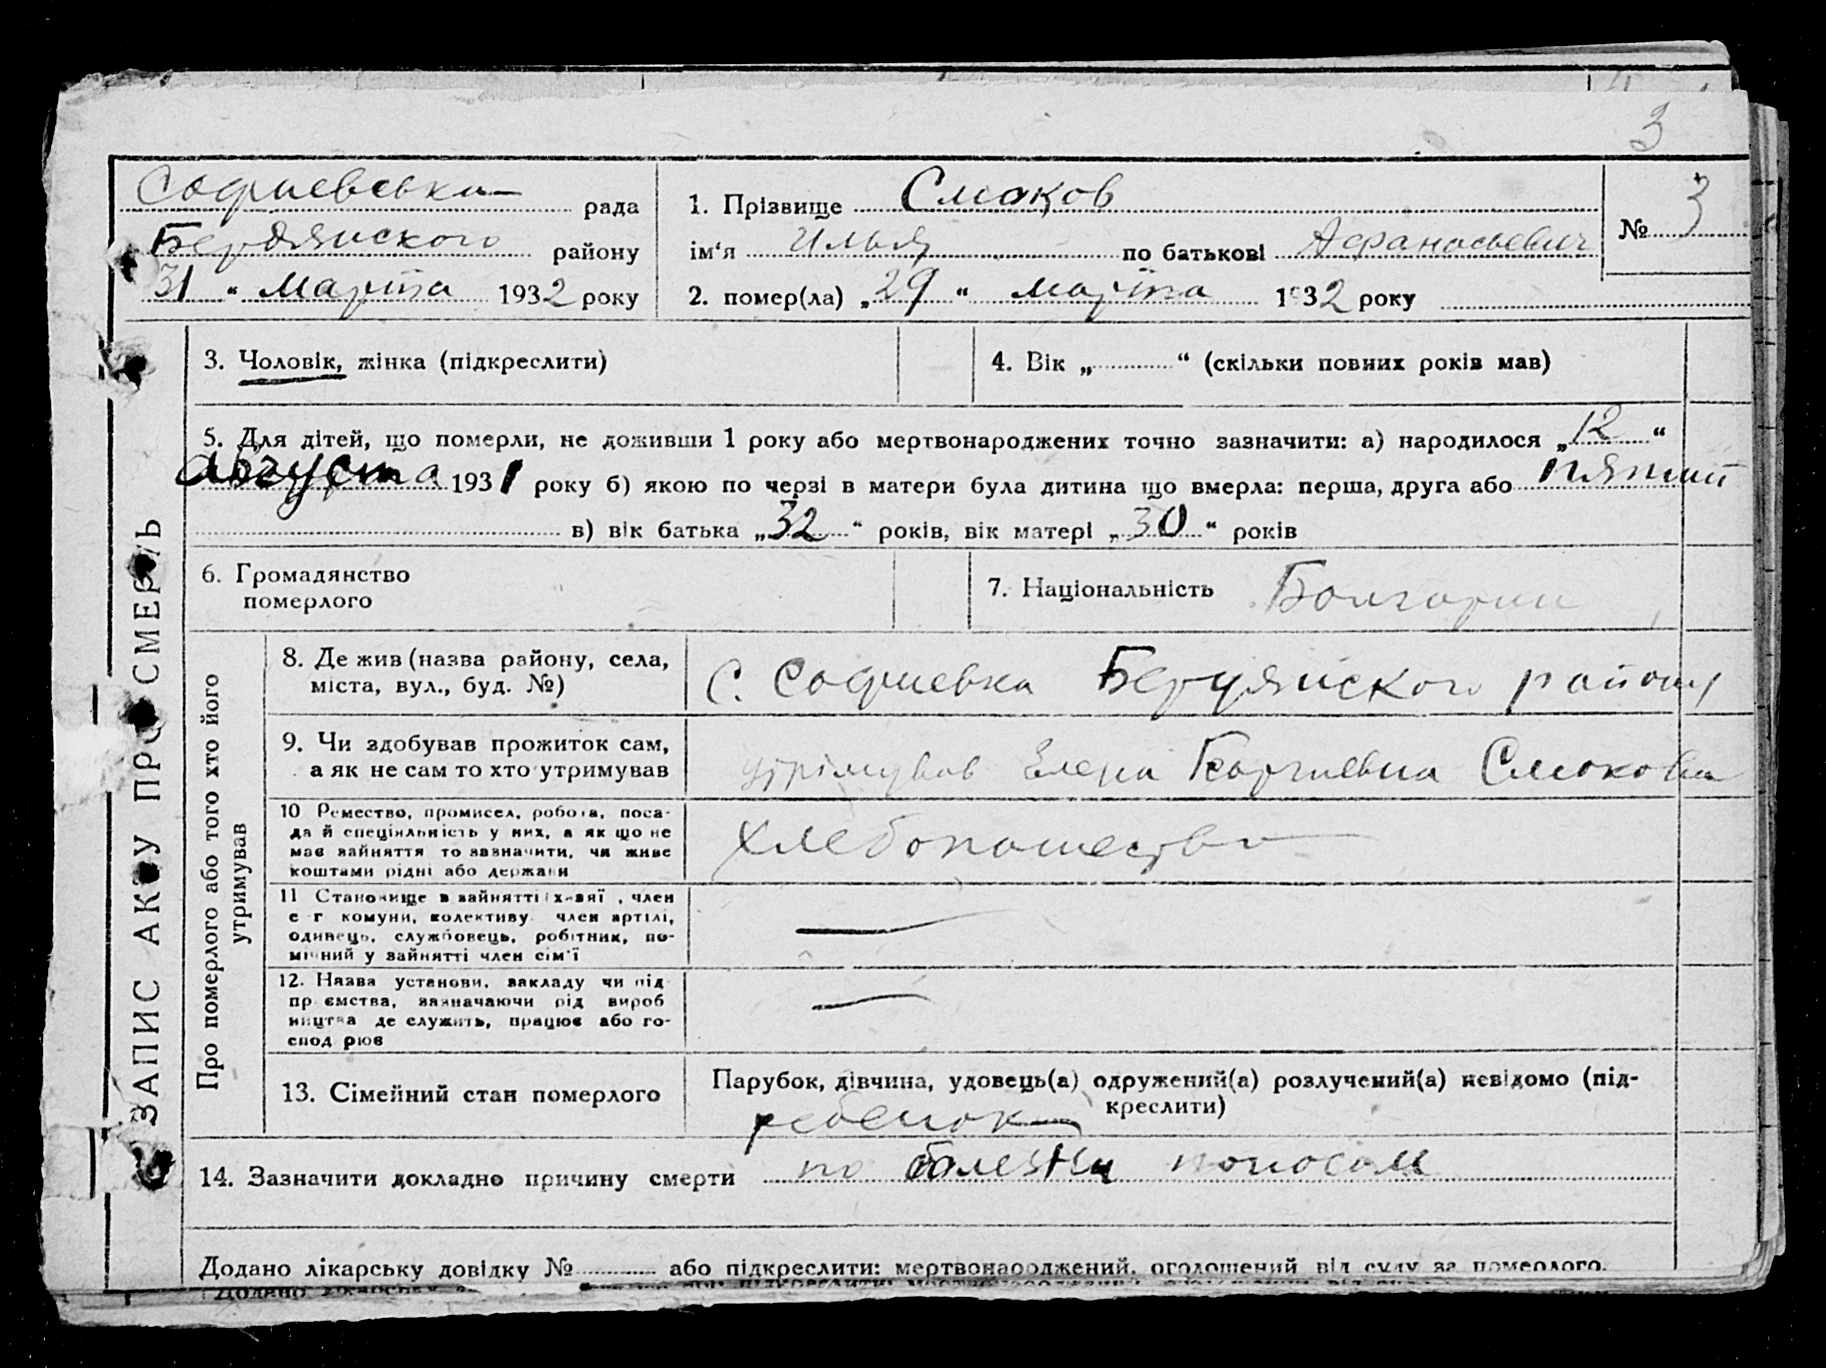 3
Софиевська рада
Бердянского району
31 " Марта 1932 року
1. Прізвище Смоков
ім'я Илья по батькові Афанасьевич
2. помер(ла) „29 " марта 1932 року
№ 3
3. Чоловік, жінка (підкреслити)
4. Вік „ " (скільки повних років мав)
5. Для дітей, що померли, не доживши 1 року або мертвонароджених точно зазначити: а) народилося „12 "
августа 1931 року б) якою по черзі в матери була дитина що вмерла: перша, друга або пятий
в) вік батька „32 " років, вік матері „30 " років
6. Громадянство
померлого
7. Національність Болгарин
ЗАПИС АКТУ ПРО СМЕРТЬ
Про померлого або того хто його
утримував
8. Де жив (назва району, села,
міста, вул., буд. №)
С. Софиевка Бердянского району
9. Чи здобував прожиток сам,
а як не сам то хто утримував
утрімував Елена Георгиевна Смокова
10 Ремество, промисел, робота, поса-
да й спеціяльність у них, а як що не
має зайняття то зазначити, чи живе
коштами рідні або держави
Хлебопашество
11 Становище в зайнятті , член
с г комуни, колективу член артілі,
одинець, службовець, робітник, по-
мічний у зайнятті член сім'ї
12. Назва установи, закладу чи під
пр ємства, зазначаючи рід вироб
ництва де служить, працює або го-
спод рює
13. Сімейний стан померлого
Парубок, дівчина, удовець(а) одружений(а) розлучений(а) невідомо (під-
креслити)
ребенок
14. Зазначити докладно причину смерти по болезни поносом
Додано лікарську довідку № або підкреслити: мертвонароджений, оголошений від суду за померлого.